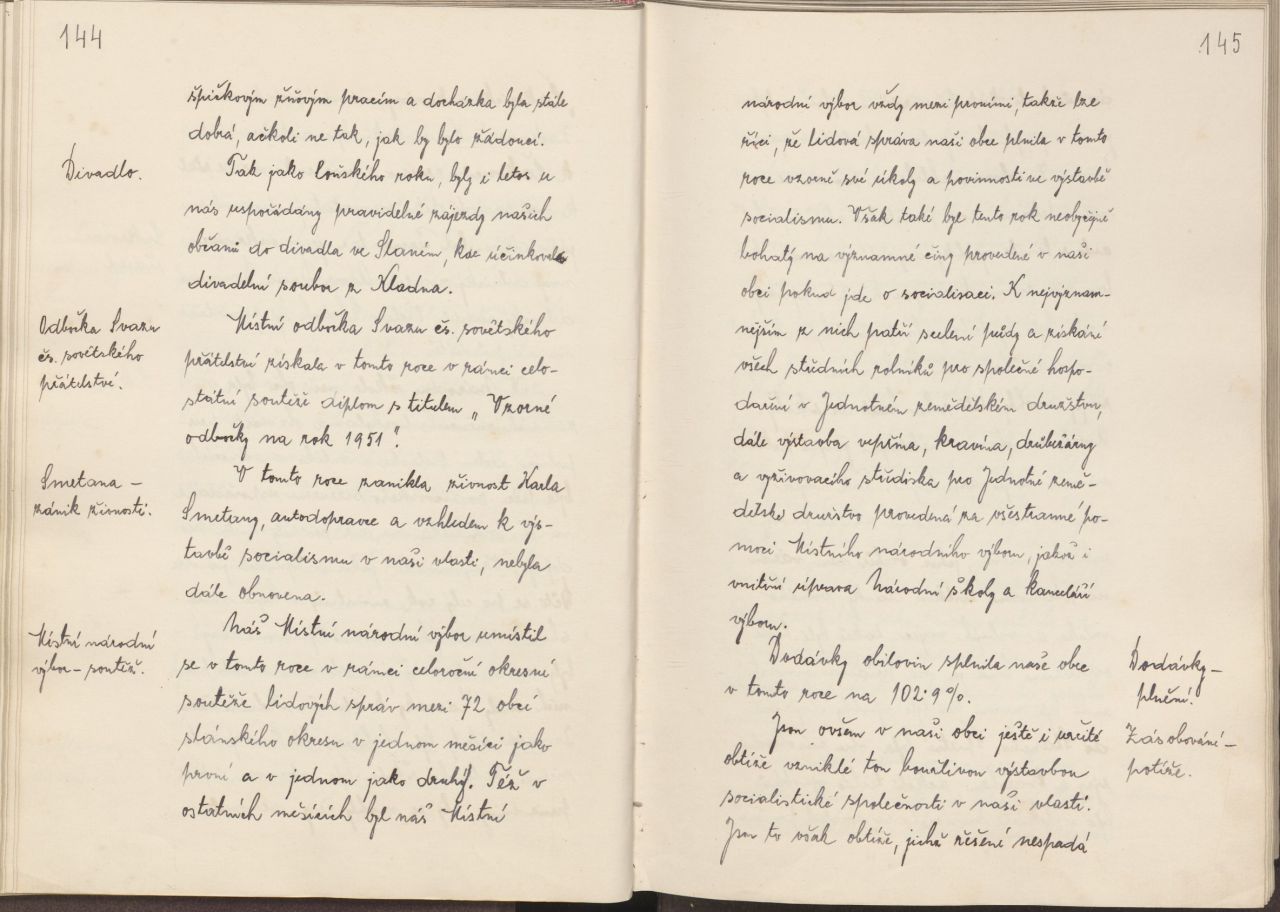 144
špičkovým žňovým pracím a docházka byla stále
dobrá, ačkoli ne tak, jak by bylo žádoucí.
Divadlo.
Tak jako loňského roku, byly i letos u
nás uspořádány pravidelné zájezdy našich
občanů do divadla ve Slaném, kde účinkovala
divadelní soubor z Kladna.
Odbočka Svazu
čs. sovětského
přátelství.
Místní odbočka Svazu čs. sovětského
přátelství získala v tomto roce v rámci celo-
státní soutěže diplom s titulem „Vzorné
odbočky na rok 1951".
Smetana –
zánik živnosti.
V tomto roce zanikla živnost Karla
Smetany, autodopravce a vzhledem k výs-
tavbě socialismu v naší vlasti, nebyla
dále obnovena.
Místní národní
výbor – soutěž.
Náš Místní národní výbor umístil
se v tomto roce v rámci celoroční okresní
soutěže lidových správ mezi 72 obcí
slánského okresu v jednom měsíci jako
první a v jednom jako druhý. Též v
ostatních měsících byl náš Místní
145
národní výbor vždy mezi prvními, takže lze
říci, že lidová správa naší obce plnila v tomto
roce vzorně své úkoly a povinnosti ve výstavbě
socialismu. Však také byl tento rok neobyčejně
bohatý na významné činy provedené v naší
obci pokud jde o socialisaci. K nejvýznam-
nejším z nich patří scelení půdy a získání
všech středních rolníků pro společné hospo-
daření v Jednotném zemědělském družstvu,
dále výstavba vepřína, kravína, drůbežárny
a vyživovacího střediska pro Jednotné země-
dělské družstvo provedená za všestranné po-
moci Místního národního výboru, jakož i
vnitřní úprava Národní školy a kanceláří
výboru.
Dodávky obilovin splnila naše obec
v tomto roce na 102·9%.
Dodávky –
plnění.
Jsou ovšem v naší obci ještě i určité
obtíže vzniklé tou bouřlivou výstavbou
socialistické společnosti v naší vlasti.
Jsou to však obtíže, jichž řešení nespadá
Zásobování –
potíže.